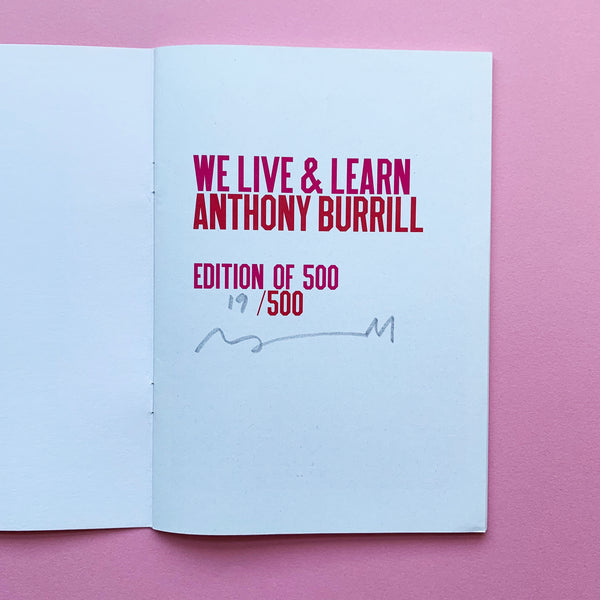 WE LIVE & LEARN
ANTHONY BURRILL
EDITION OF 500
19 /500